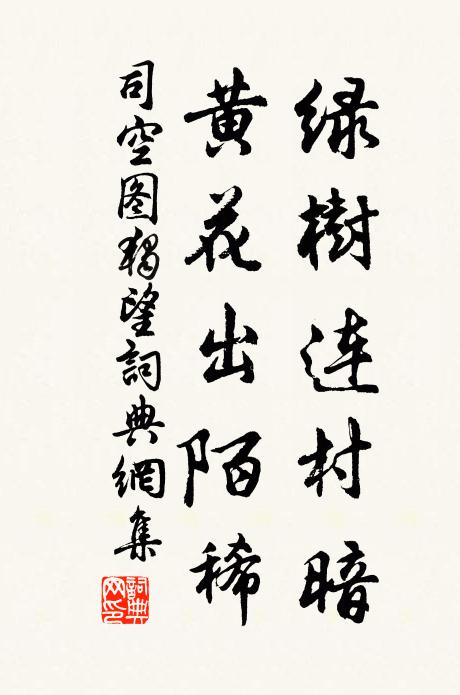 绿樹连村暗
黄花出陌稀
司空图獨望詞典網集
詞典网印